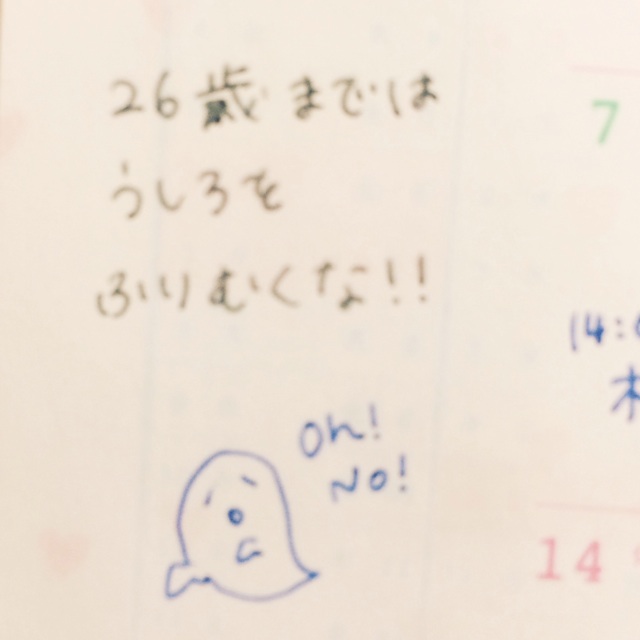 26歳までは
うしろを
ふりむくな!!
oh!
No!
7
14:0
14